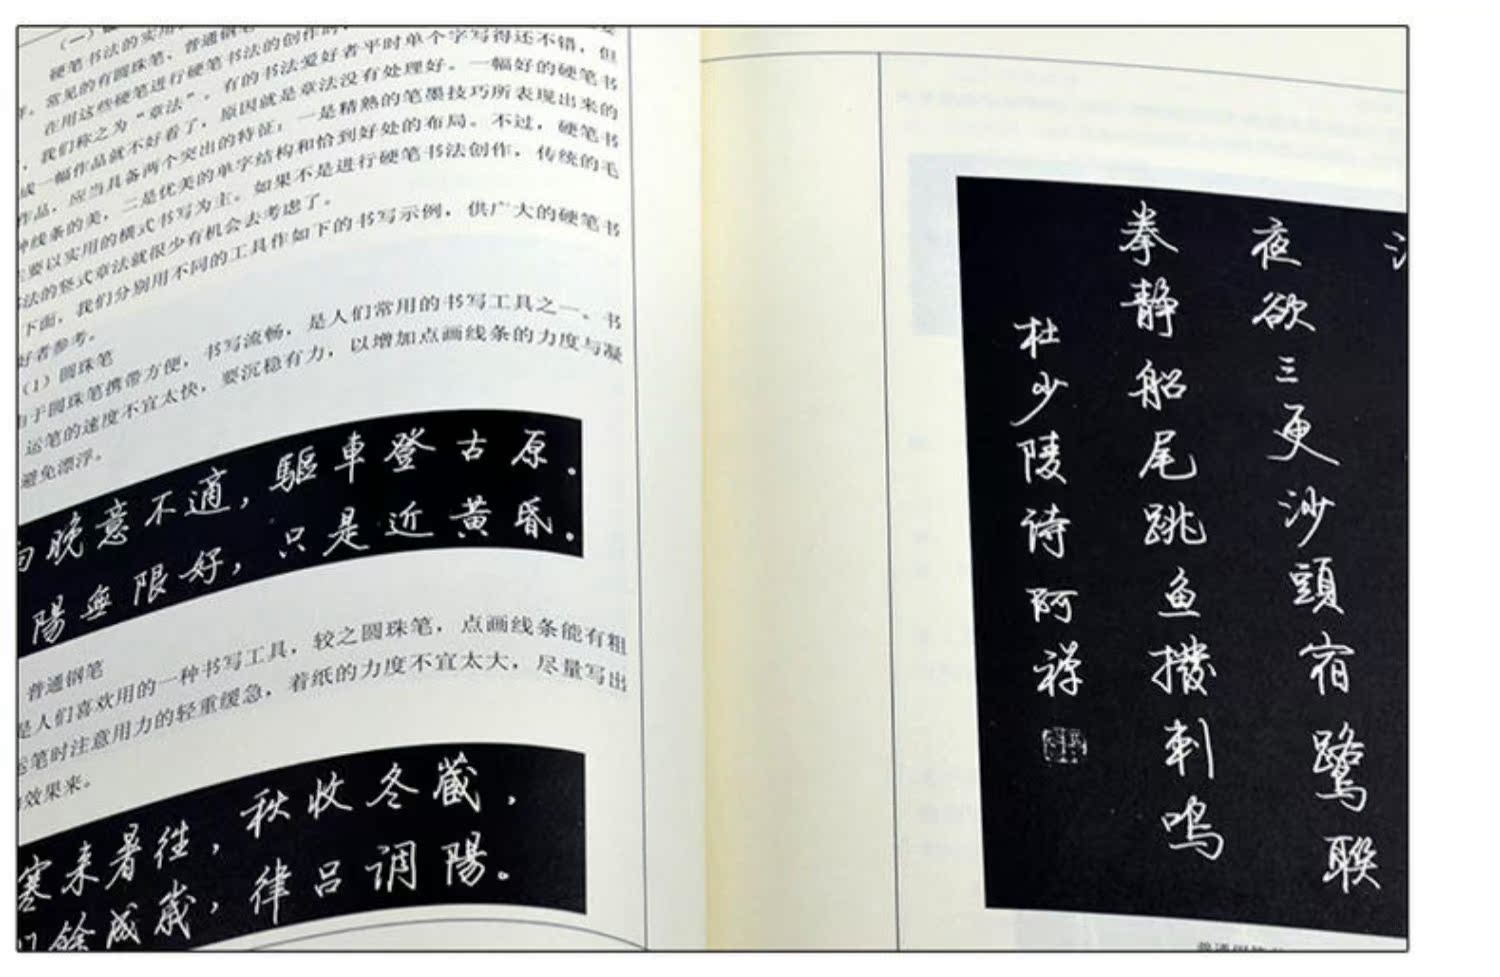 硬笔书法的实用
常见的有圆珠笔、普通钢笔
在用这些硬笔进行硬笔书法的创作时,
我们称之为“章法”。有的书法爱好者平时单个字写得还不错,但
成一幅作品就不好看了,原因就是章法没有处理好。一幅好的硬笔书
作品,应当具备两个突出的特征:一是精熟的笔墨技巧所表现出来的
种线条的美,二是优美的单字结构和恰到好处的布局。不过,硬笔书
要以实用的横式书写为主。如果不是进行硬笔书法创作,传统的毛
法的竖式章法就很少有机会去考虑了。
下面,我们分别用不同的工具作如下的书写示例,供广大的硬笔书
好者参考。
(1)圆珠笔
由于圆珠笔携带方便,书写流畅,是人们常用的书写工具之一。书
运笔的速度不宜太快,要沉稳有力,以增加点画线条的力度与凝
避免漂浮。
向晚意不適,驅車登古原。
陽無限好,只是近黄昏。
普通钢笔
是人们喜欢用的一种书写工具,较之圆珠笔,点画线条能有粗
运笔时注意用力的轻重缓急,着纸的力度不宜太大,尽量写出
效果来。
寒来暑往,秋收冬藏,
餘成歲,律吕调陽。
夜欲三更沙頭宿鹭联
拳静船尾跳鱼撥刺鸣
杜少陵诗阿禅